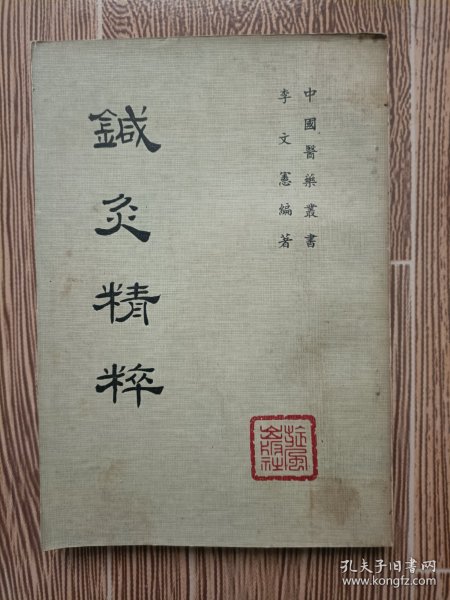 中國醫藥叢書
李文憲編著
鍼灸精粹
旋風出版社
孔夫子旧书网
www.kongfz.com